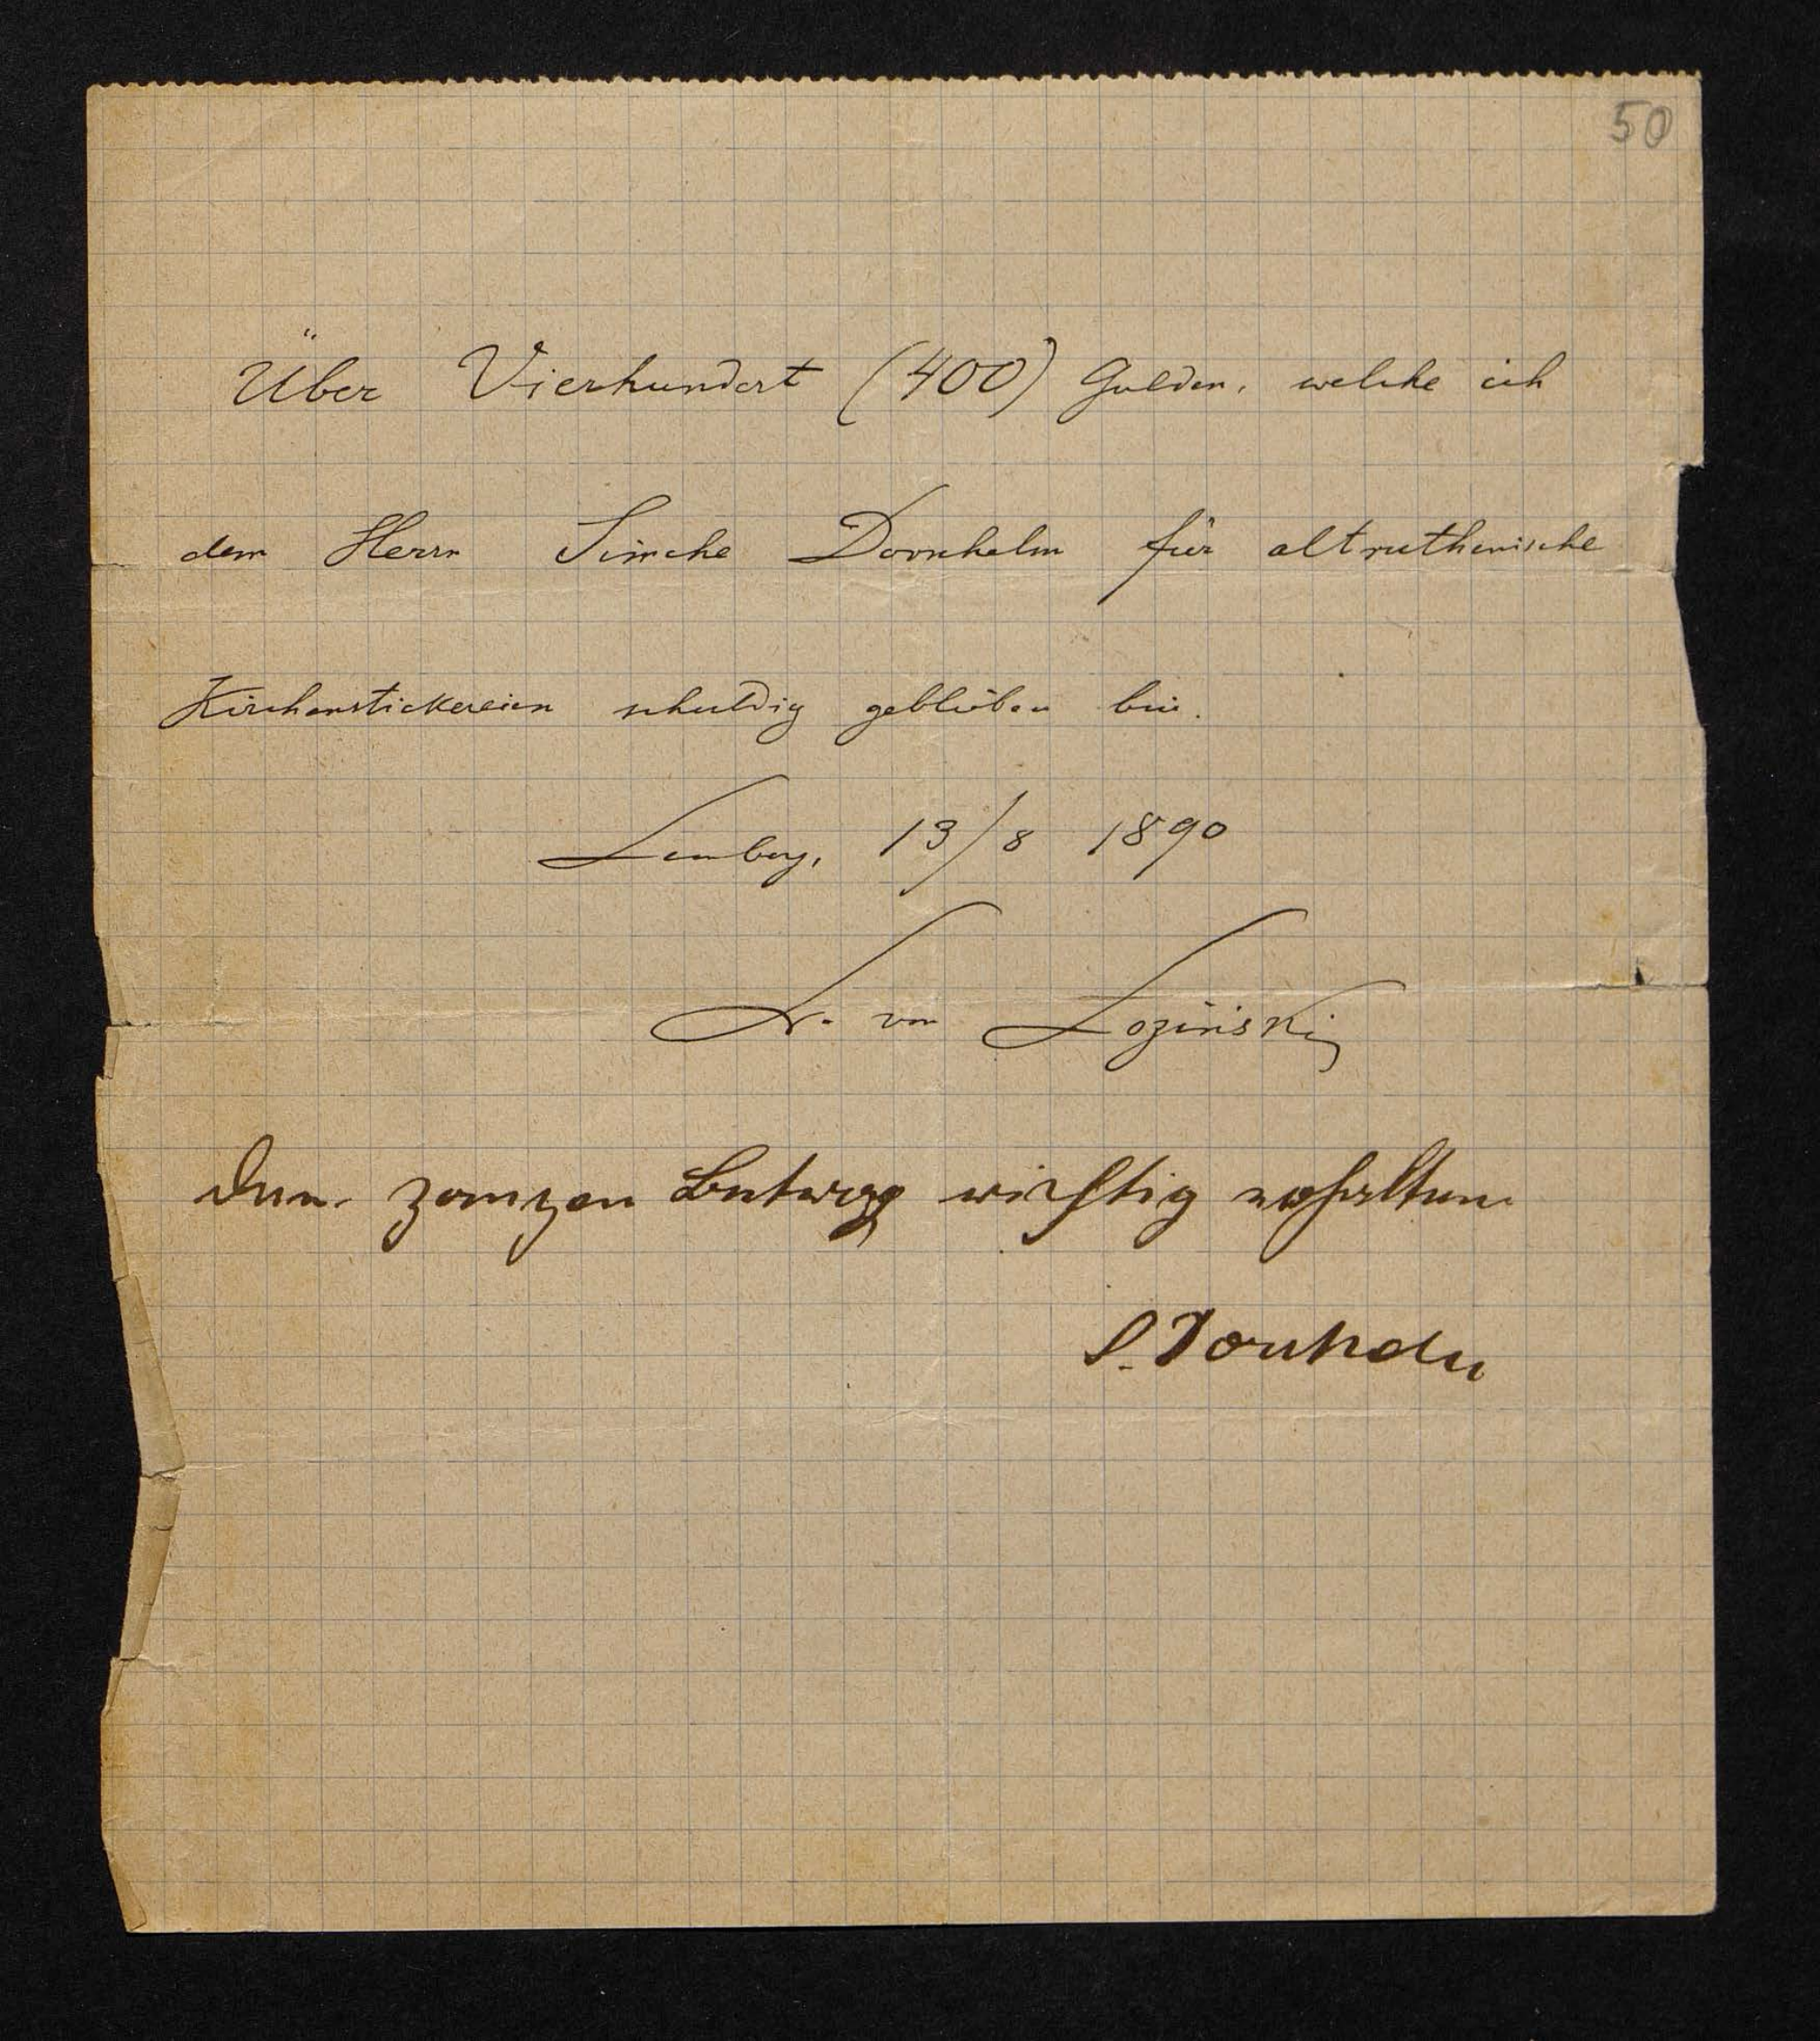 50
Über Vierhundert (400) Gulden, welche ich
dem Herrn Simche Dornhelm für altruthenische
Kirchenstickereien schuldig geblieben bin.
Lemberg, 13/8 1890
von Łoziński
Den ganzen Betrag richtig erhalten
S. Dornhelm